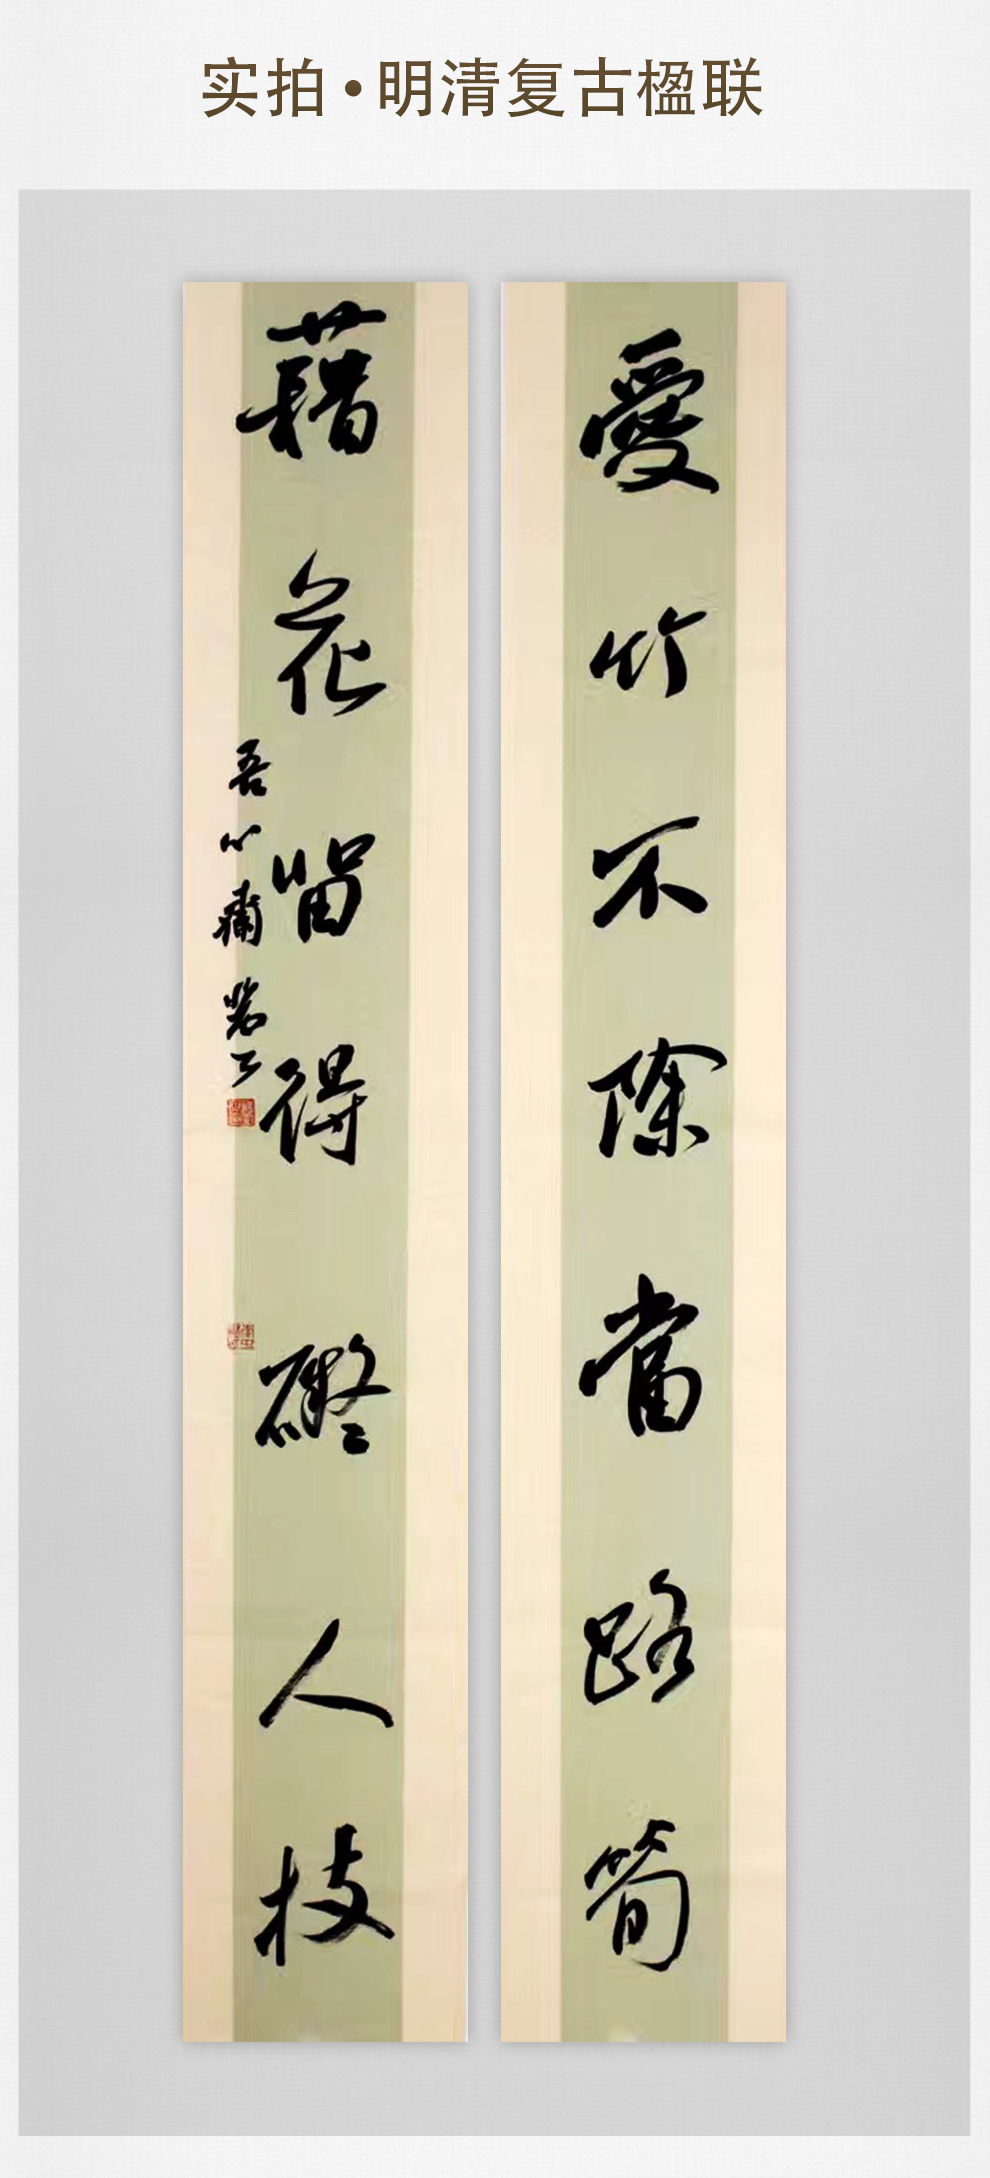 实拍·明清复古楹联
愛竹不除當路筍
藉花留得礙人枝
吾心